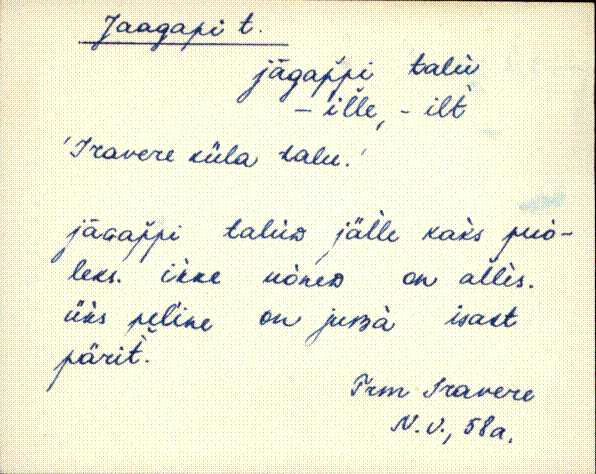 Jaagapi t.
jāgap̆pi talu̇̀
– il̆le, – ilt̀
'Iravere küla talu.'
jāgap̆pi taluD jäl̆le kaks puo-
leks. ikke nòneD on al̆lès.
üks peline on juBà isast
pärit̀.
Trm Iravere
N.V., 58a.